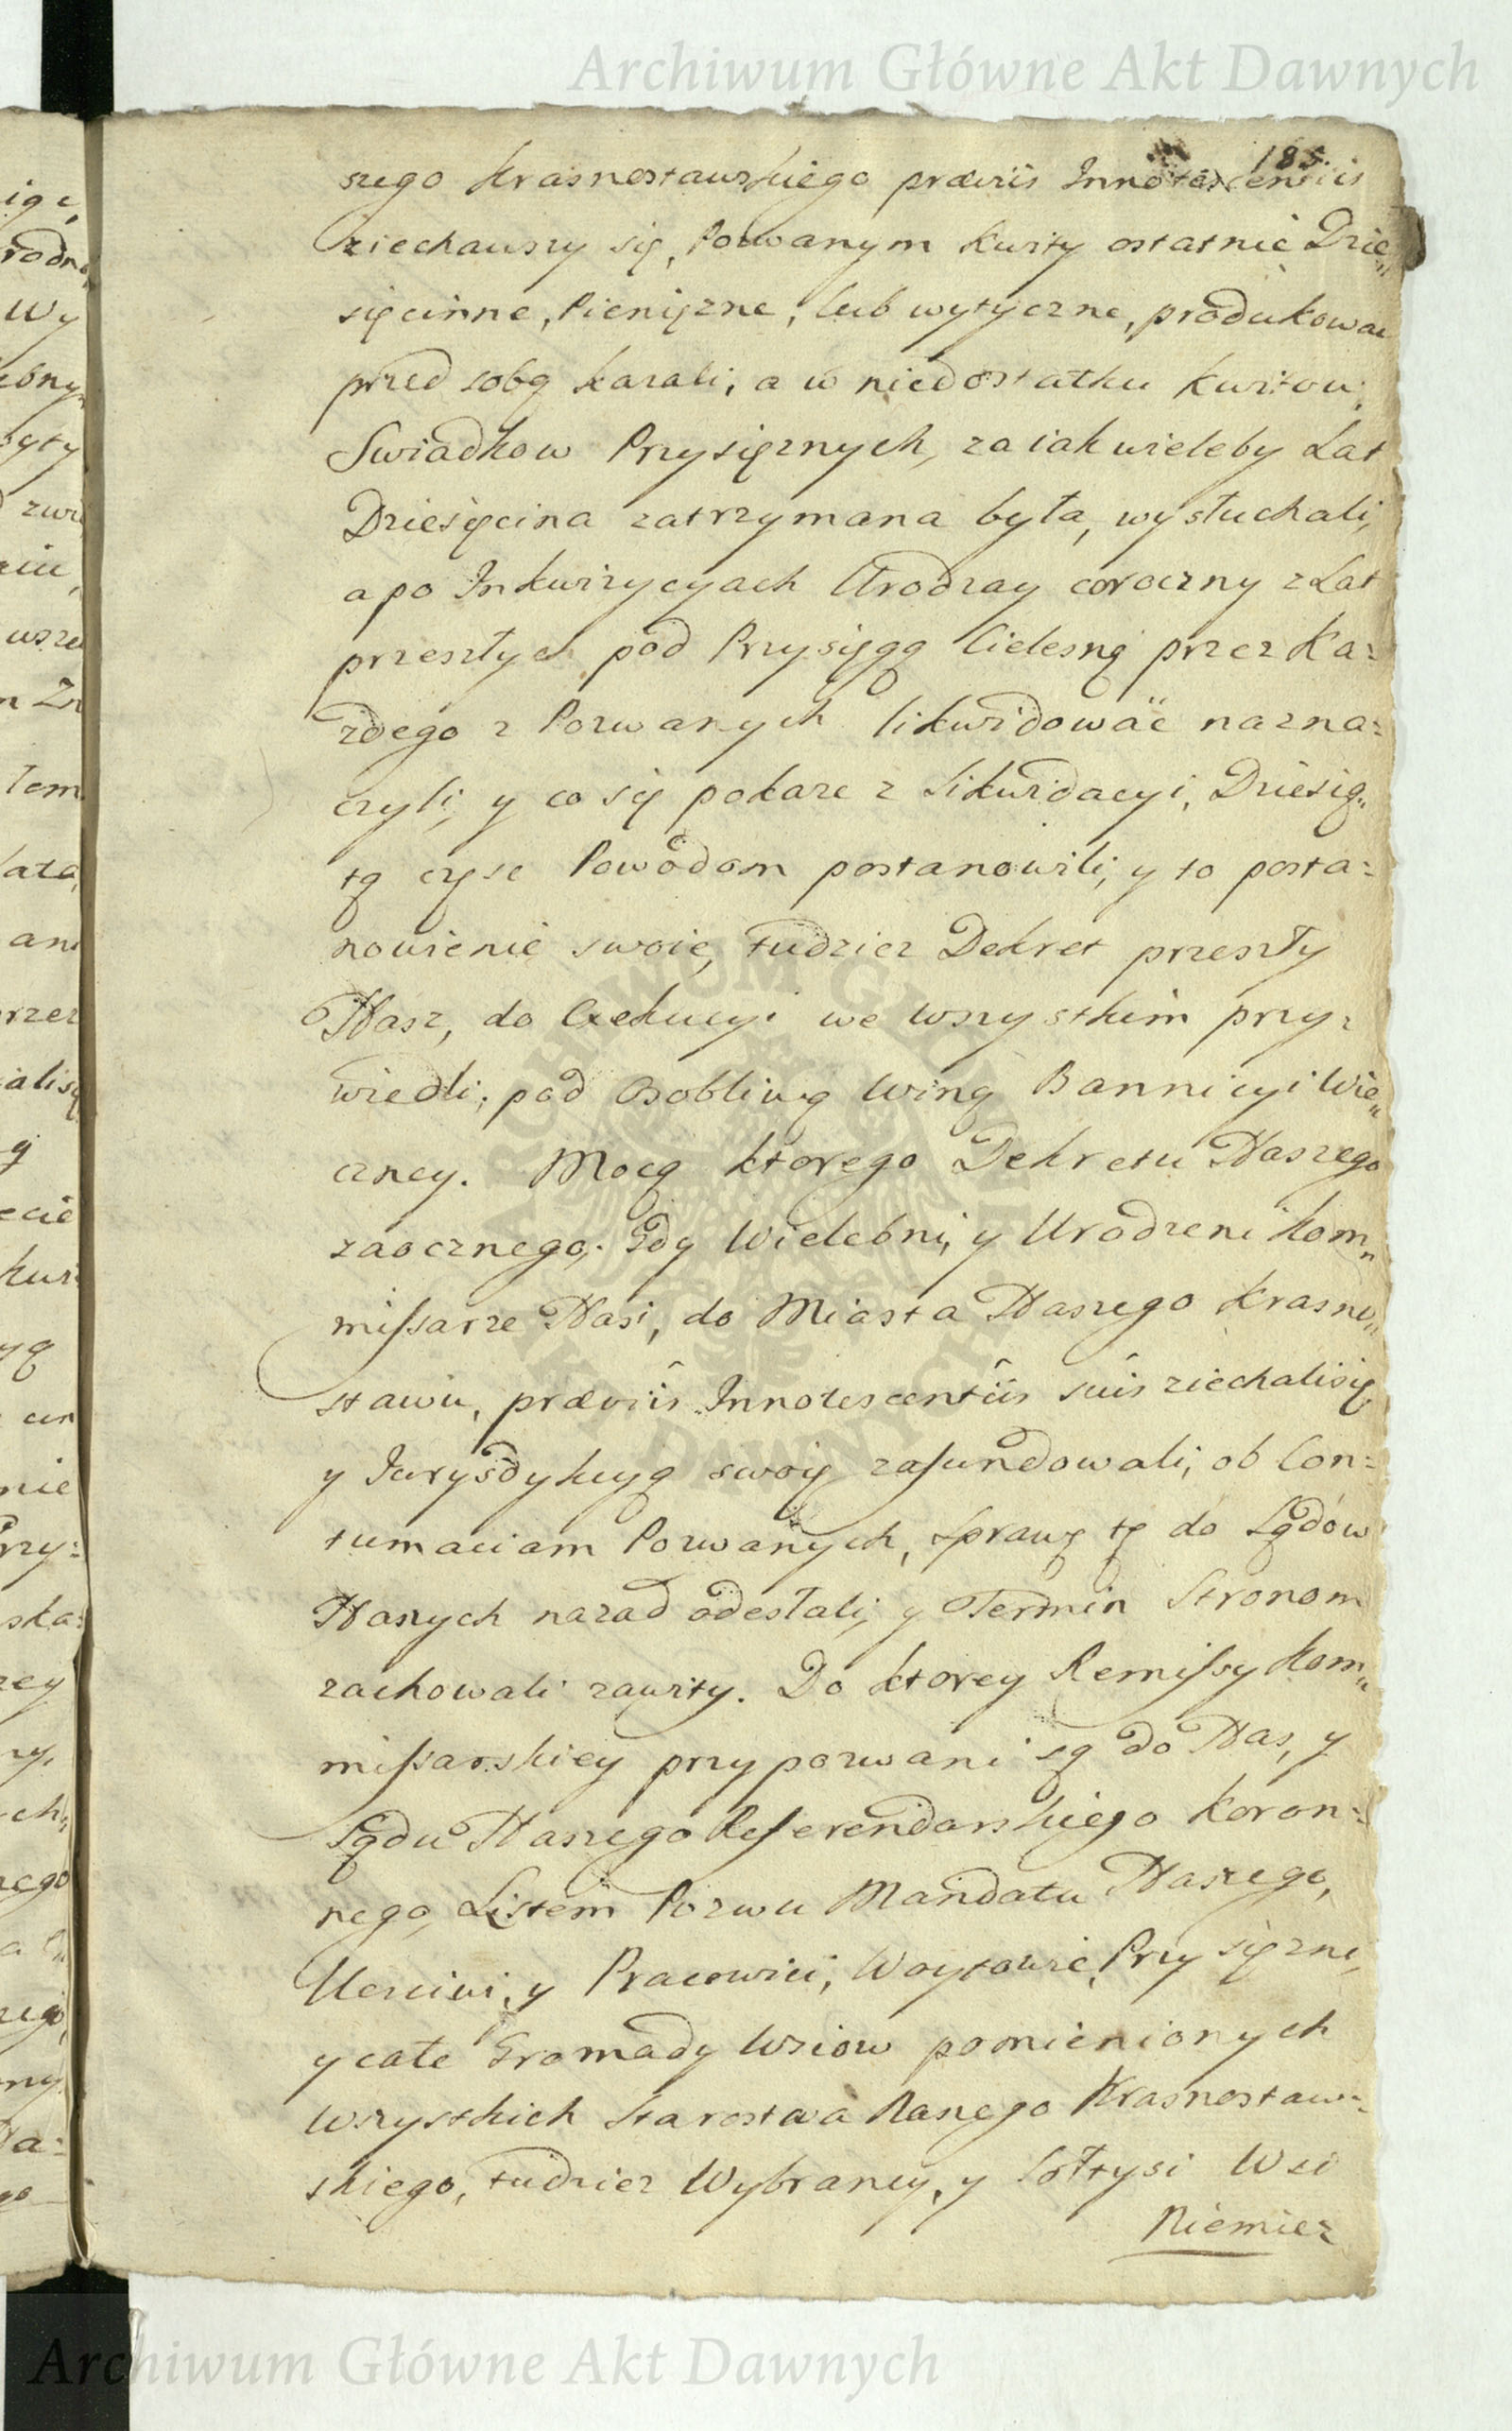 Archiwum Główne Akt Dawnych
185.
szego Krasnostawskiego præviis Innotescentiis
ziechawszy się, Pozwanym Kwity ostatnie Dzie„
sięcinne, Pieniężne, lub wytyczne, produkowac
przed sobą kazali, a w niedostatku Kwitow,
Swiadkow Przysięznych, za iak wieleby Lat
Dziesięcina zatrzymana była, wysłuchali,
a po Inkwizycyach Urodzay coroczny z Lat
przeszłych pod Przysięgą Cielesną przez Ka=
zdego z Pozwanych likwidować nazna=
czyli, y co się pokaze z Likwidacyi, Dziesią„
tą częsc Powodom postanowili, y to posta=
nowienie swoie, tudziez Dekret przeszły
Nasz, do Exekucyi we wszystkim przy=
wiedli, pod Osobliwą Winą Bannicyi Wie„
czney. Mocą ktorego Dekretu Naszego
zaocznego, Gdy Wielebni, y Urodzeni Kom„
missarze Nasi, do Miasta Naszego Krasno„
stawu, præviis Innotescentiis suis ziechali się
y Jurysdykcyą swoię zafundowali, ob Con=
tumaciam Pozwanych, sprawę tę do Sądow
Naszych nazad odesłali, y Termin Stronom
zachowali zawity. Do ktorey Remissy Kom„
missarskiey przypozwani są do Nas, y
Sądu Naszego Referendarskiego Koron=
nego, Listem Pozwu Mandatu Naszego,
Uczciwi, y Pracowici, Woytowie, Przysięzni,
y całe Gromady Wsiow pomienionych
wszystkich Starostwa Naszego Krasnostaw=
skiego, tudziez Wybrancy, y Sołtysi Wsi
Niemie=
Archiwum Główne Akt Dawnych